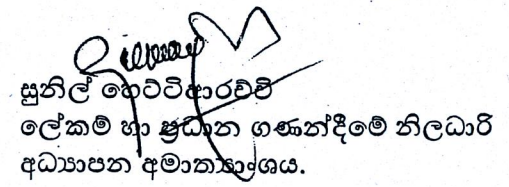 සුනිල් හෙට්ටිආරච්චි
ලේකම් හා ප්‍රධාන ගණන්දීමේ නිලධාරි
අධ්‍යාපන අමාත්‍යාංශය.